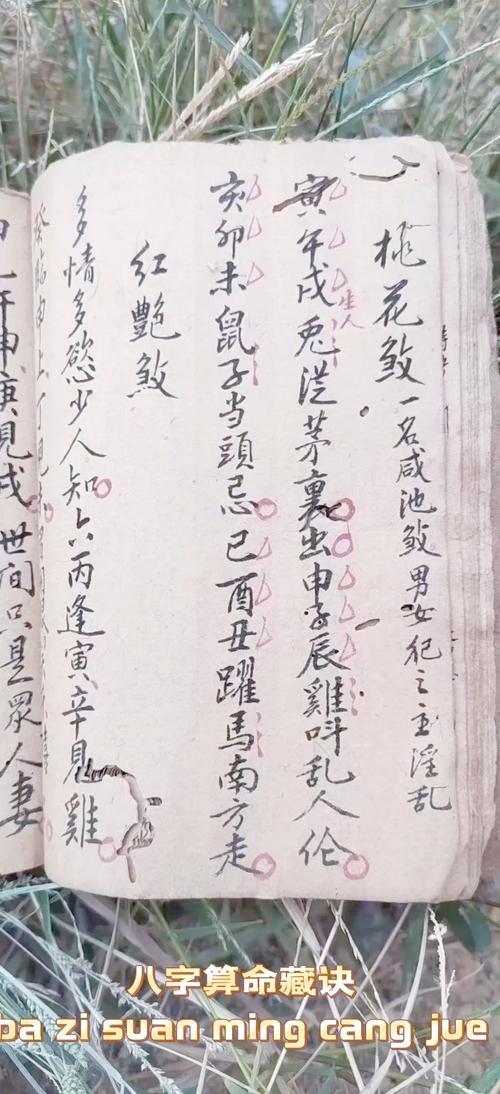 桃花煞 一名咸池煞男女犯之主淫乱
寅午戌兎從茅裏出申子辰雞呌乱人伦
生人
亥卯未鼠子当頭忌巳酉丑躍馬南方走
红艷煞
多情多慾少人知六丙逢寅辛見雞
癸臨申上丁見
午申庚見戌世間只是眾人妻
八字算命藏诀
ba zi suan ming cang jue